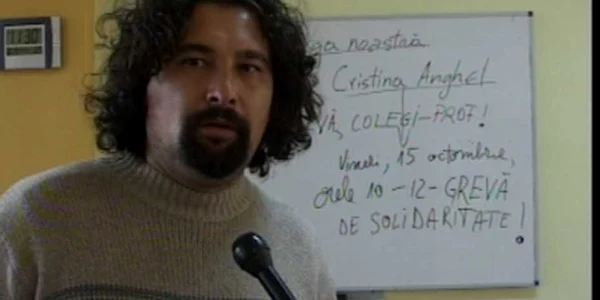 11:30
noastră
Cristina Anghel
VĂ, COLEGI-PROF!
Vineri, 15 octombrie,
orele 10-12-GREVĂ
DE SOLIDARITATE!